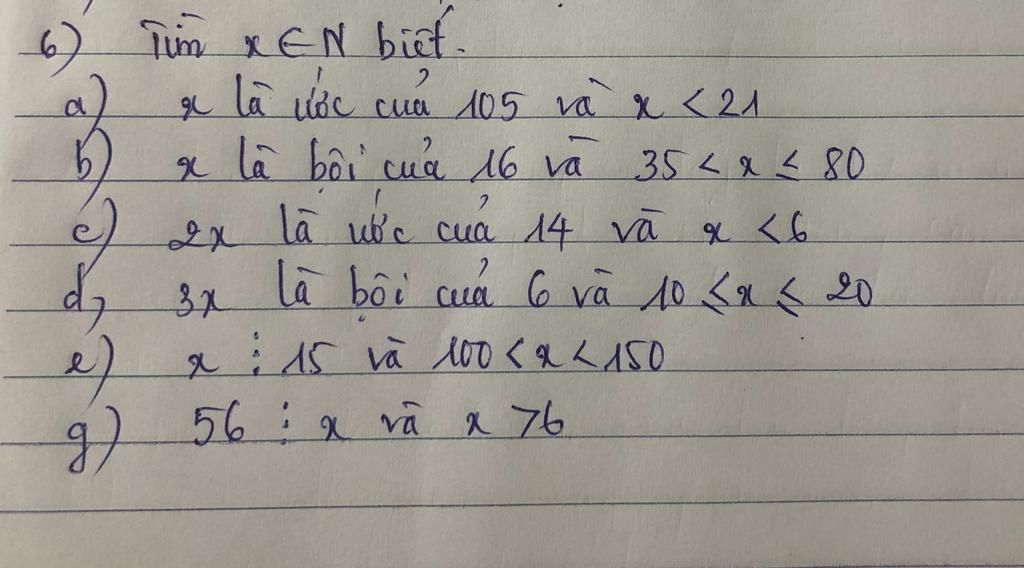 6) Tìm x ∈ N biết.
a) x là ước của 105 và x < 21
b) x là bội của 16 và 35 < x ≤ 80
c) 2x là ước của 14 và x < 6
d, 3x là bội của 6 và 10 ≤ x ≤ 20
e) x ⋮ 15 và 100 < x < 150
g) 56 ⋮ x và x > 6